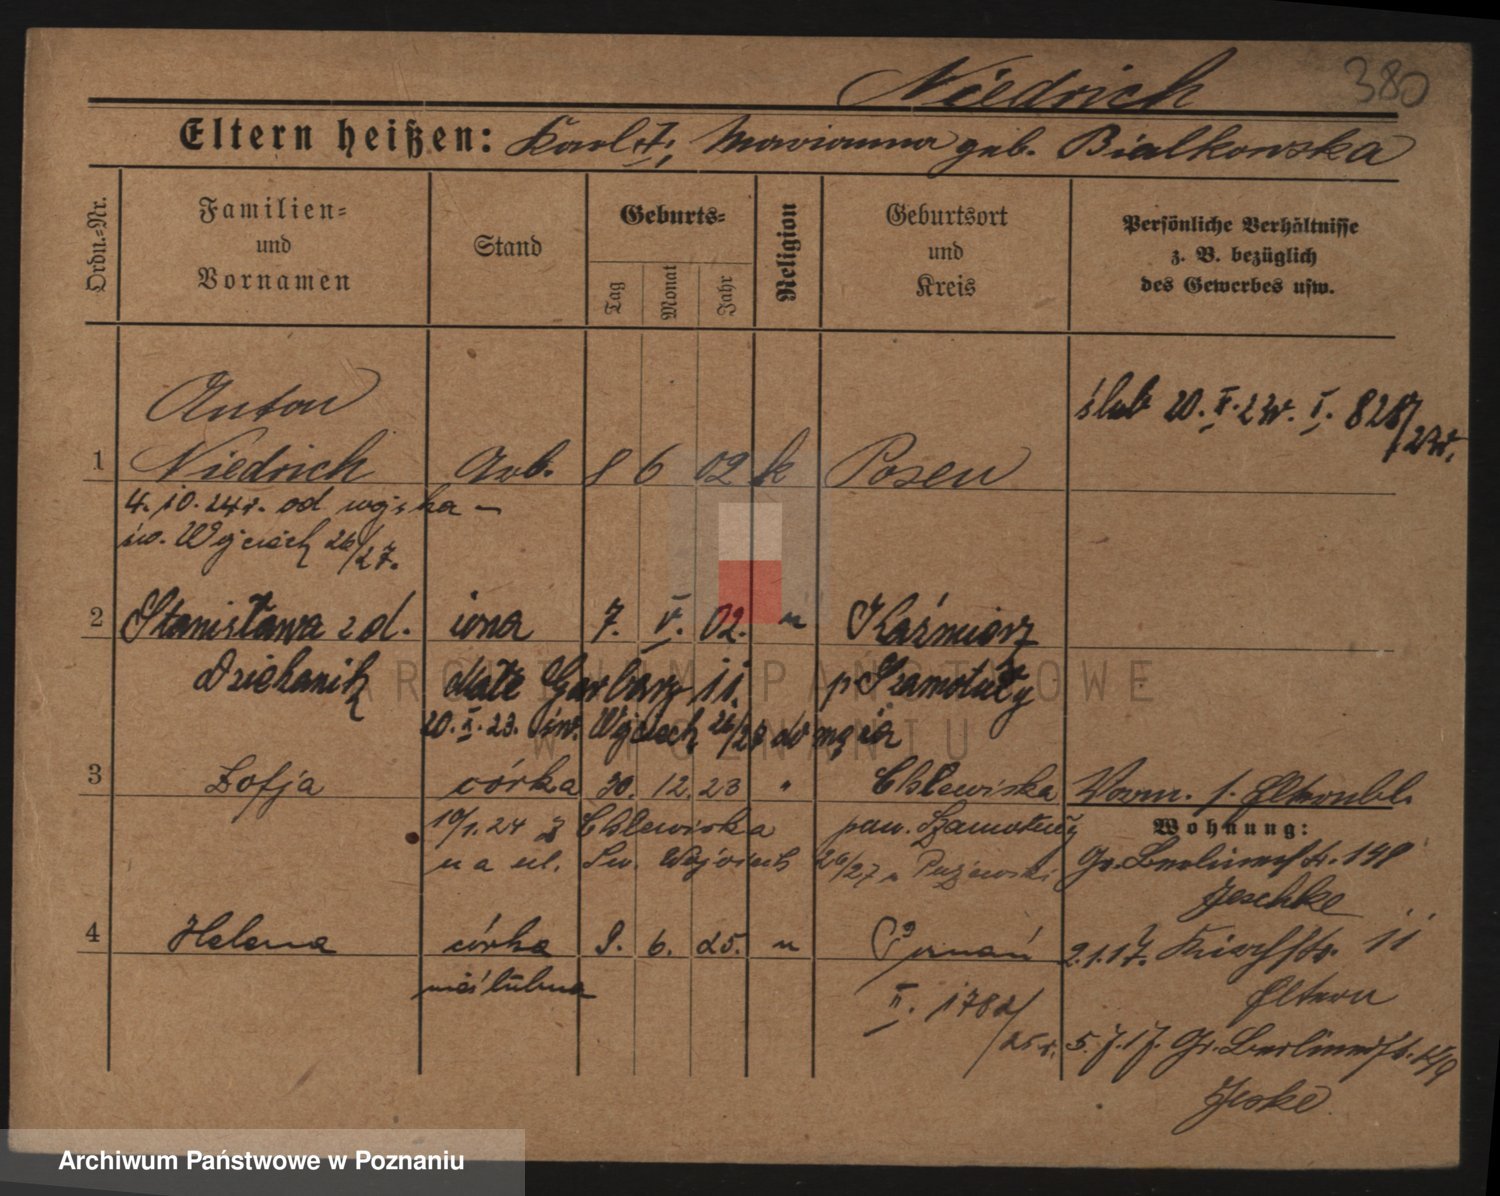 Niedrich
380
Eltern heißen: Karl †, Marianna geb. Bialkowska
Ordn.=Nr.
Familien=
und
Vornamen
Stand
Geburts=
Tag
Monat
Jahr
Religion
Geburtsort
und
Kreis
Persönliche Verhältnisse
z. B. bezüglich
des Gewerbes usw.
Anton
ślub 20. II. 23r. I. 828/23r.
1 Niedrich Arb. 8 6 02 k Posen
4. 10. 24r. od wojska –
św. Wojciech 26/27.
2 Stanisława z d. żona 7. V. 02. " Kaźmierz
Dziekanik Garbary 11. p. Szamotuły
20. X. 23. św. Wojciech 26/27 do męża
3 Zofja córka 30. 12. 23 " Chlewiska Vorm. s. Elternbl.
19/1. 24 z Chlewiska pow. Szamotuły
Wohnung:
na ul. Św. Wojciech 26/27 Gr. Berlinerstr. 149
Jeschke
4 Helena córka 8. 6. 25. " Poznań 2.1.17. Kirchstr. 11
nieślubna II. 1782/25r. Eltern
5.7.17. Gr. Berlinerstr.
Jeske
ARCHIWUM PAŃSTWOWE
W POZNANIU
Archiwum Państwowe w Poznaniu